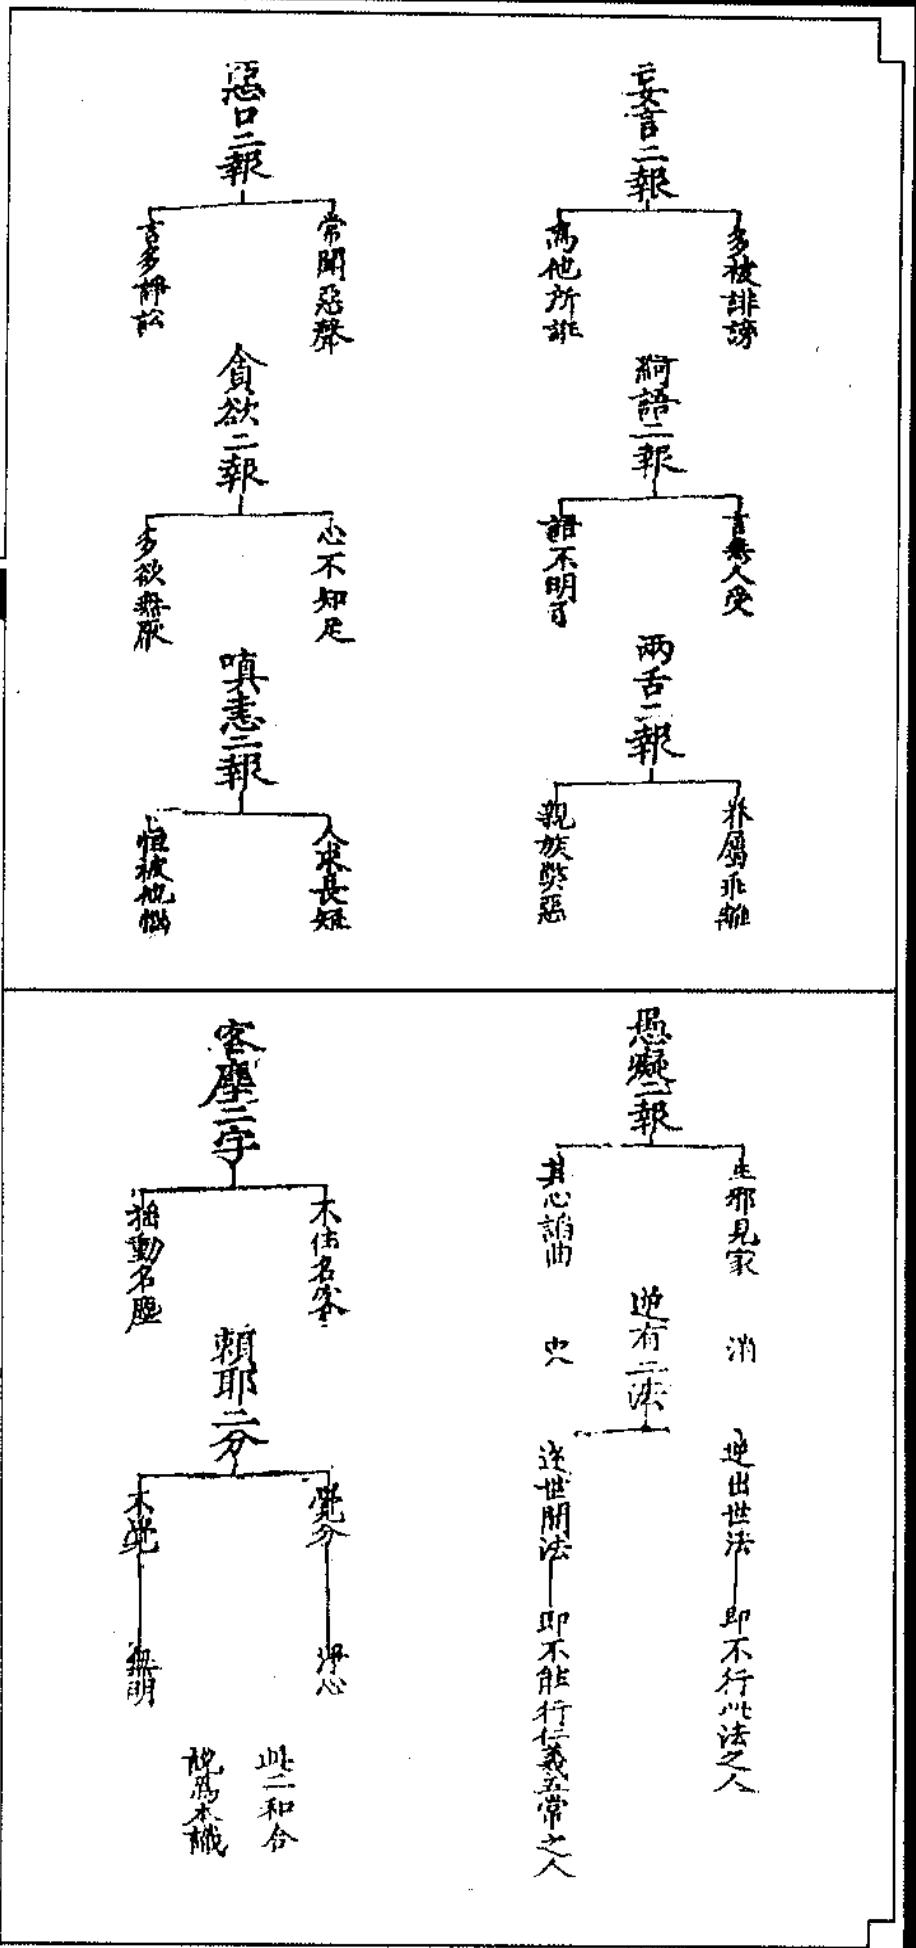 妄言二報
多被誹謗
為他所誑
綺語二報
言無人受
語不明了
兩舌二報
眷屬乖離
親族弊惡
惡口二報
常聞惡聲
言多諍訟
貪欲二報
心不知足
多欲無厭
嗔恚二報
人求長短
恒被他惱
愚癡二報
生邪見家
其心諂曲
逆有二法
消
逆出世法
即不行此法之人
逆世間法
即不能行仁義五常之人
客塵二字
不住名客
搖動名塵
賴耶二分
覺分
淨心
不覺
無明
此二和合
說為本識